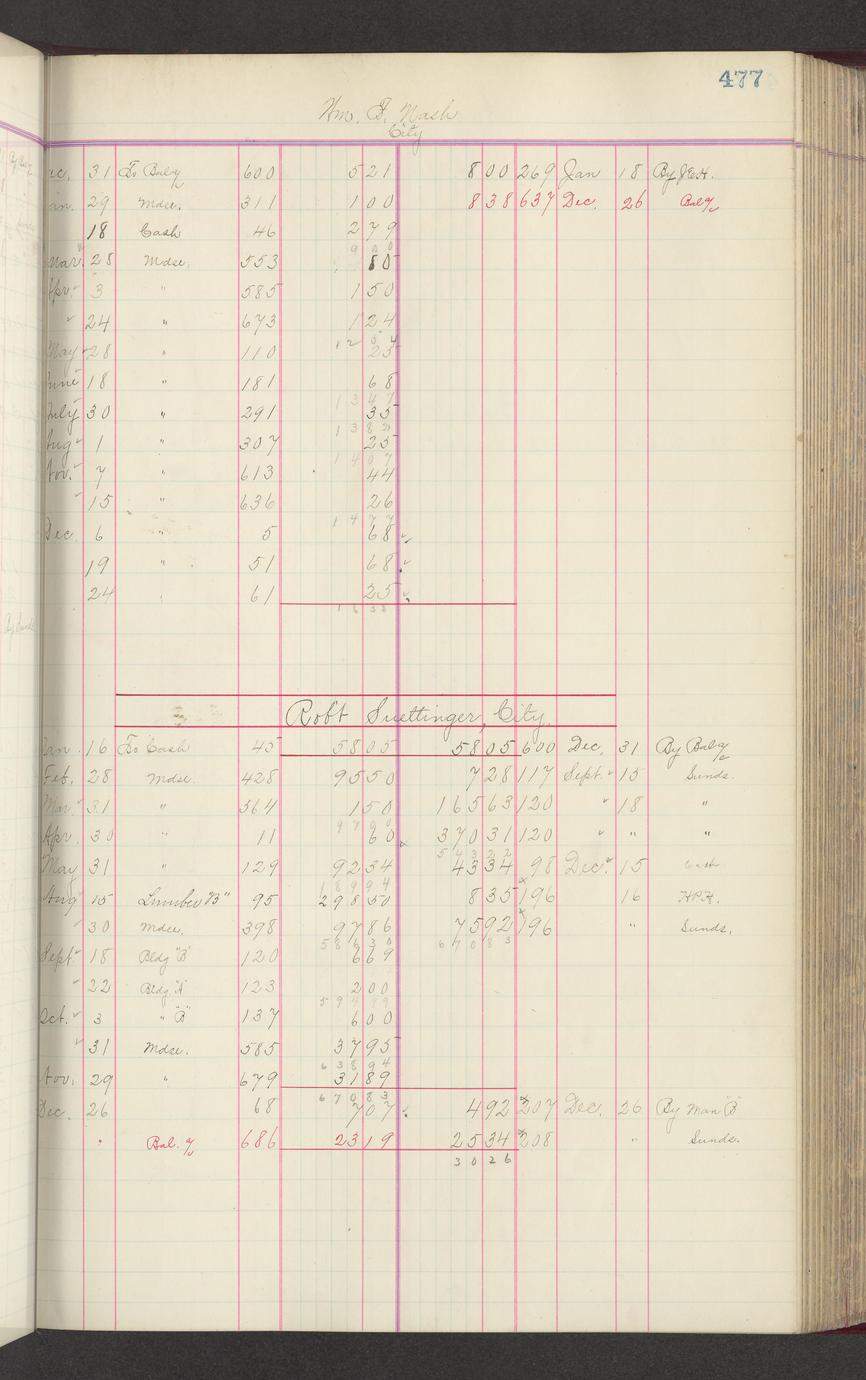 477
Wm. B. Nash
City
ec. 31 To Baly 600 521 800 269 Jan 18 By J.E.H.
an. 29 Mdse. 311 100 838 637 Dec. 26 Bal%
18 Cash 46 279
900
Mar. 28 Mdse. 553 80
Apr. 3 " 585 150
" 24 " 673 124
1254
May 28 " 110 25
June 18 " 181 68
1347
July 30 " 291 35
1382
Aug 1 " 307 25
1407
Nov. 7 " 613 44
" 15 " 636 26
1477
Dec. 6 " 5 68
19 " 51 68
24 " 61 25
1638
Robt Suettinger, City.
Jan. 16 To Cash 45 5805 5805 600 Dec, 31 By Bal%
Feb. 28 Mdse. 428 9550 728 117 Sept. 15 Sunds.
Mar. 31 " 564 150 16563 120 " 18 "
9700
Apr. 30 " 11 60 37031 120 " " "
54322
May 31 " 129 9234 4334 98 Dec. 15 Cash
18994
Aug 15 Lumber "B" 95 29850 835 196 16 H.P.H.
" 30 Mdse. 398 9786 7592 196 " Sunds.
58630 67083
Sept. 18 Bldg "B" 120 669
" 22 Bldg. "A" 123 200
59499
Oct. 3 " "B" 137 600
" 31 Mdse. 585 3795
63894
Nov. 29 " 679 3189
67083
Dec. 26 68 707 492 207 Dec. 26 By Man "B"
" Bal. % 686 2319 2534 208 " Sunds.
3026